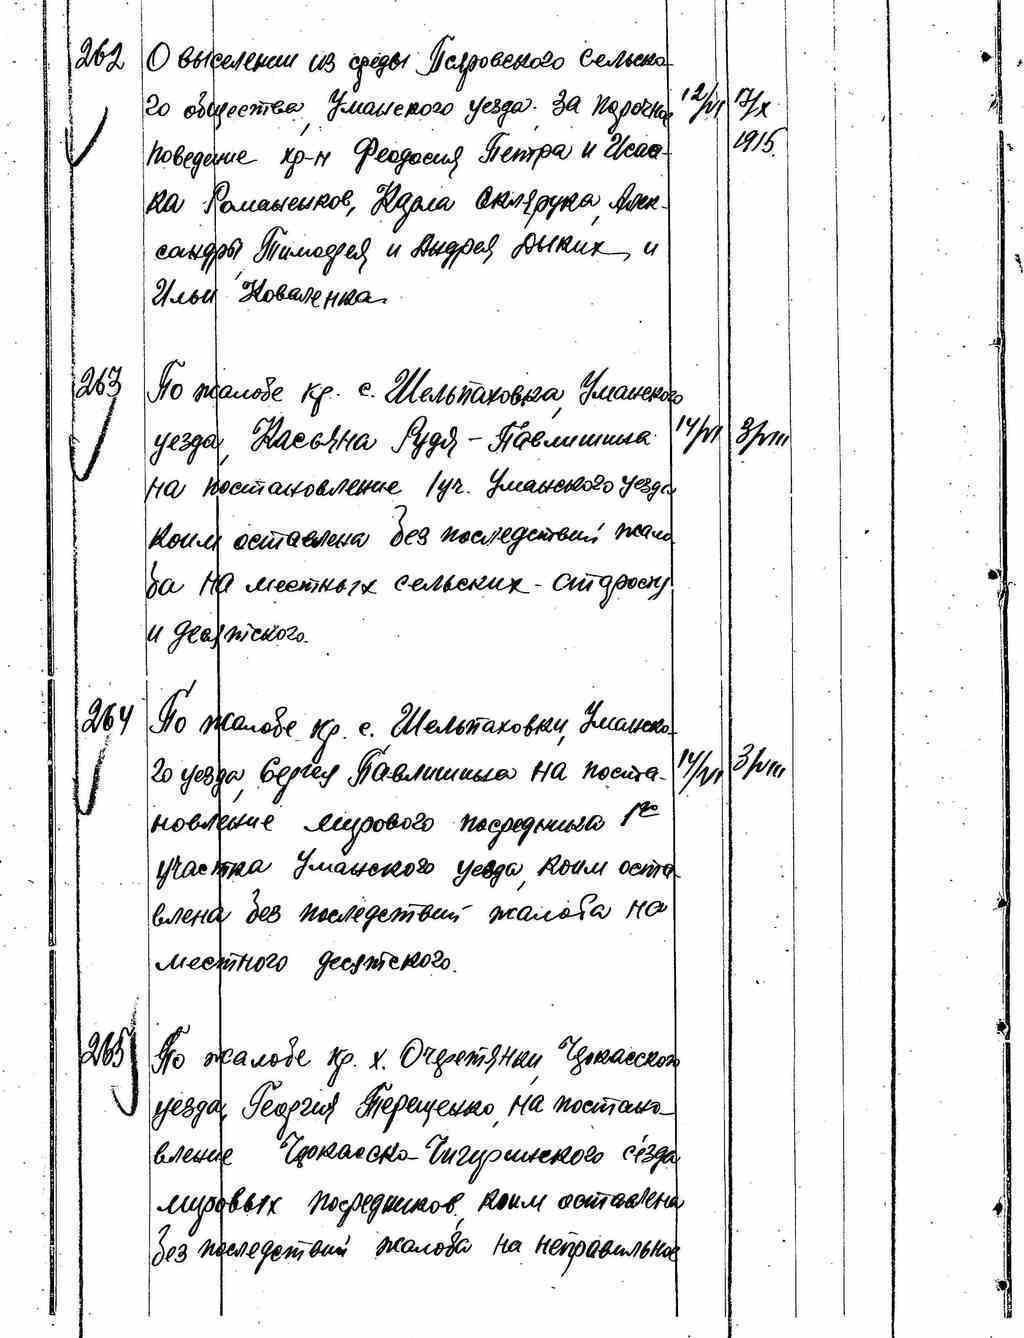 262 О выселении из среды Псяровского сельско-
го общества, Уманского уезда за порочное 12/VI 17/X
поведение кр-н Феодосия Петра и Исаа- 1915.
ка Романенков, Карла Склярука, Алек-
сандры, Тимофея и Андрея Диких, и
Ильи Коваленка.
263 По жалобе кр. с. Шельпаховка, Уманского
уезда, Касьяна Рудя - Павлишина 14/VI 3/VIII
на постановление 1 уч. Уманского уезда
коим оставлена без последствий жало
ба на местных сельских - старосту
и десятского.
264 По жалобе кр. с. Шельпаховки, Уманско-
го уезда, Сергея Павлишина на поста- 14/VI 3/VIII
новление мирового посредника 1го
участка Уманского уезда, коим оста-
влена без последствий жалоба на
местного десятского.
265 По жалобе кр. х. Очеретянки, Черкасского
уезда, Георгия Терещенко, на постано-
вление Черкасско-Чигиринского с'езда
мировых посредников, коим оставлена
без последствий жалоба на неправильное